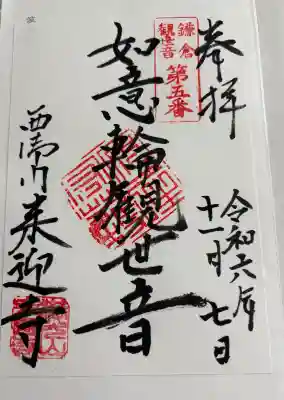 奉拝
鎌倉
観世音
第五番
令和六年
十一月七日
如意輪観世音
西御門来迎寺